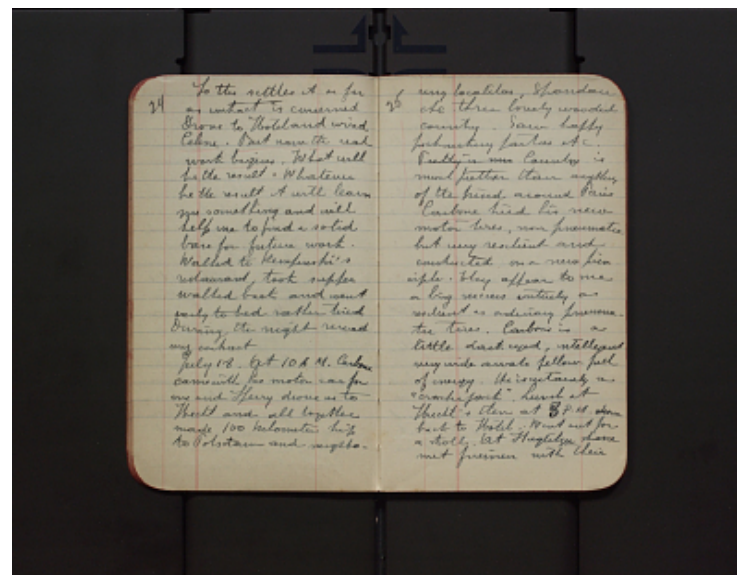 24
So this settles it as far
as contract is concerned
Drove to Hotel and wired
Celine. But now the real
work begins. What will
be the result. Whatever
be the result it will learn
me something and will
help me to find a solid
base for future work.
Walked to Kempinski's
restaurant, took supper
walked back and went
early to bed rather tired
During the night reread
my contract
July 18. At 10 A.M. Carbone
came with his motor car for
me and Harry drove us to
Hecht and all together
made 100 kilometer trip
to Potsdam and neighbo-
26
ring localities, Spandau
etc three lovely wooded
country. Saw happy
picknicking parties etc
Country is
much prettier than anything
of the kind around Paris
Carbone tried his new
motor tires, non pneumatic
but very resilient and
constructed on a new prin
ciple. They appear to me
a big success entirely as
resilient as ordinary pneuma-
tic tires. Carbone is a
little dark eyed, intelligent
very wide awake fellow full
of energy. He is certainly a
"crackerjack" lunch at
Hecht's then at 3 P.M. drove
back to Hotel. Went out for
a stroll. At
met firemen with their